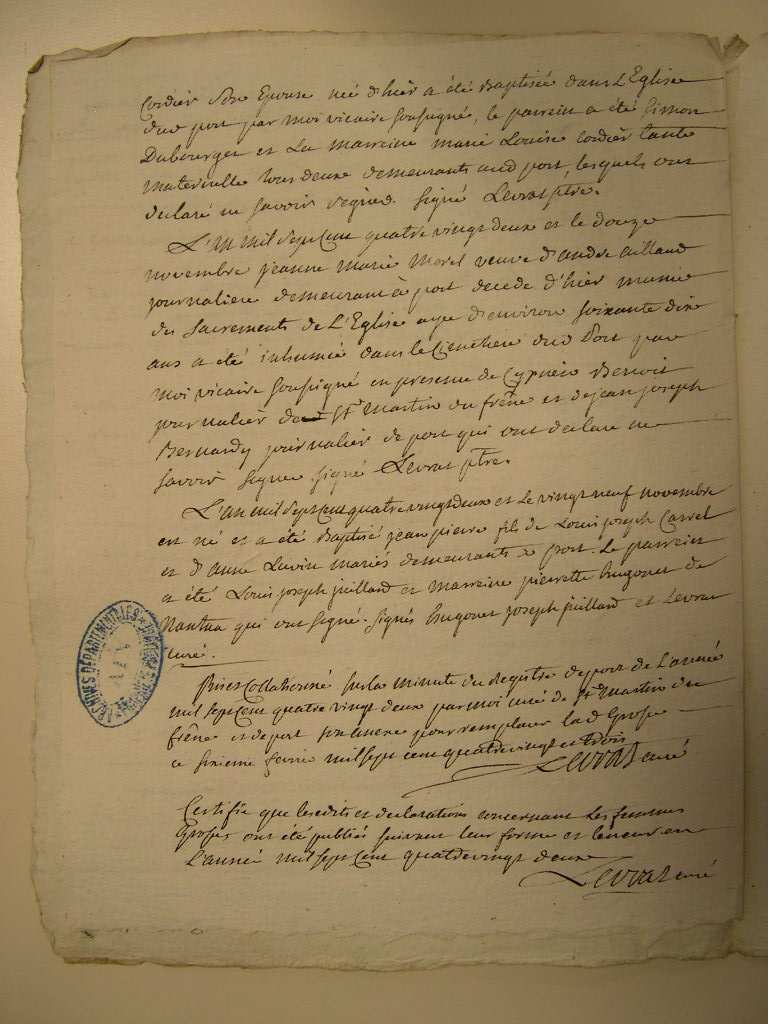 Cordier Son Epouse née d'hier a été Baptisée dans L'Eglise
dud port par moi vicaire soussigné, le parrein a été Simon
Dubourget et La marreine marie Louise cordier tante
maternelle tous deux demeurants aud port, lesquels ont
declaré ne savoir signer. Signé Levrat ptre.
L'an mil Sept Cent quatre vingt deux et le douze
novembre jeanne Marie Morel veuve d'andre ailland
journaliere demeurant à port decede d'hier munie
des Sacrements de L'Eglise agee d'environ soixante dix
ans a été inhumée dans le Cimetiere dud Port par
moi vicaire Soussigné en presence de Cyprien Benoit
journalier de St. Martin du frêne et de jean joseph
Bernardy journalier de port qui ont declare ne
savoir signer. signé Levrat ptre.
L'an mil Sept Cent quatre vingt deux et Le vingt neuf novembre
est né et a été Baptisé jean pierre fils de Louis joseph Carrel
et d'anne Luvin mariés demeurants a port. Le parrein
a été Louis joseph juillard et Marreine pierrette hugonet de
Nantua qui ont signé. Signés hugonet joseph juillard et Levrat
curé.
ARCHIVES DÉPARTEMENTALES
Collationné sur la minute du Registre de port de L'année
mil sept Cent quatre vingt deux par moi curé de St Martin du
frêne et de port son annexe pour remplacer lad Grosse
ce sixieme fevrier mil sept cent quatre vingt et trois
Levrat curé
Certifie que les edits et declarations concernant Les femmes
Grosses ont été publiés suivant leur forme et teneur en
L'année mil sept Cent quatre vingt deux
Levrat curé